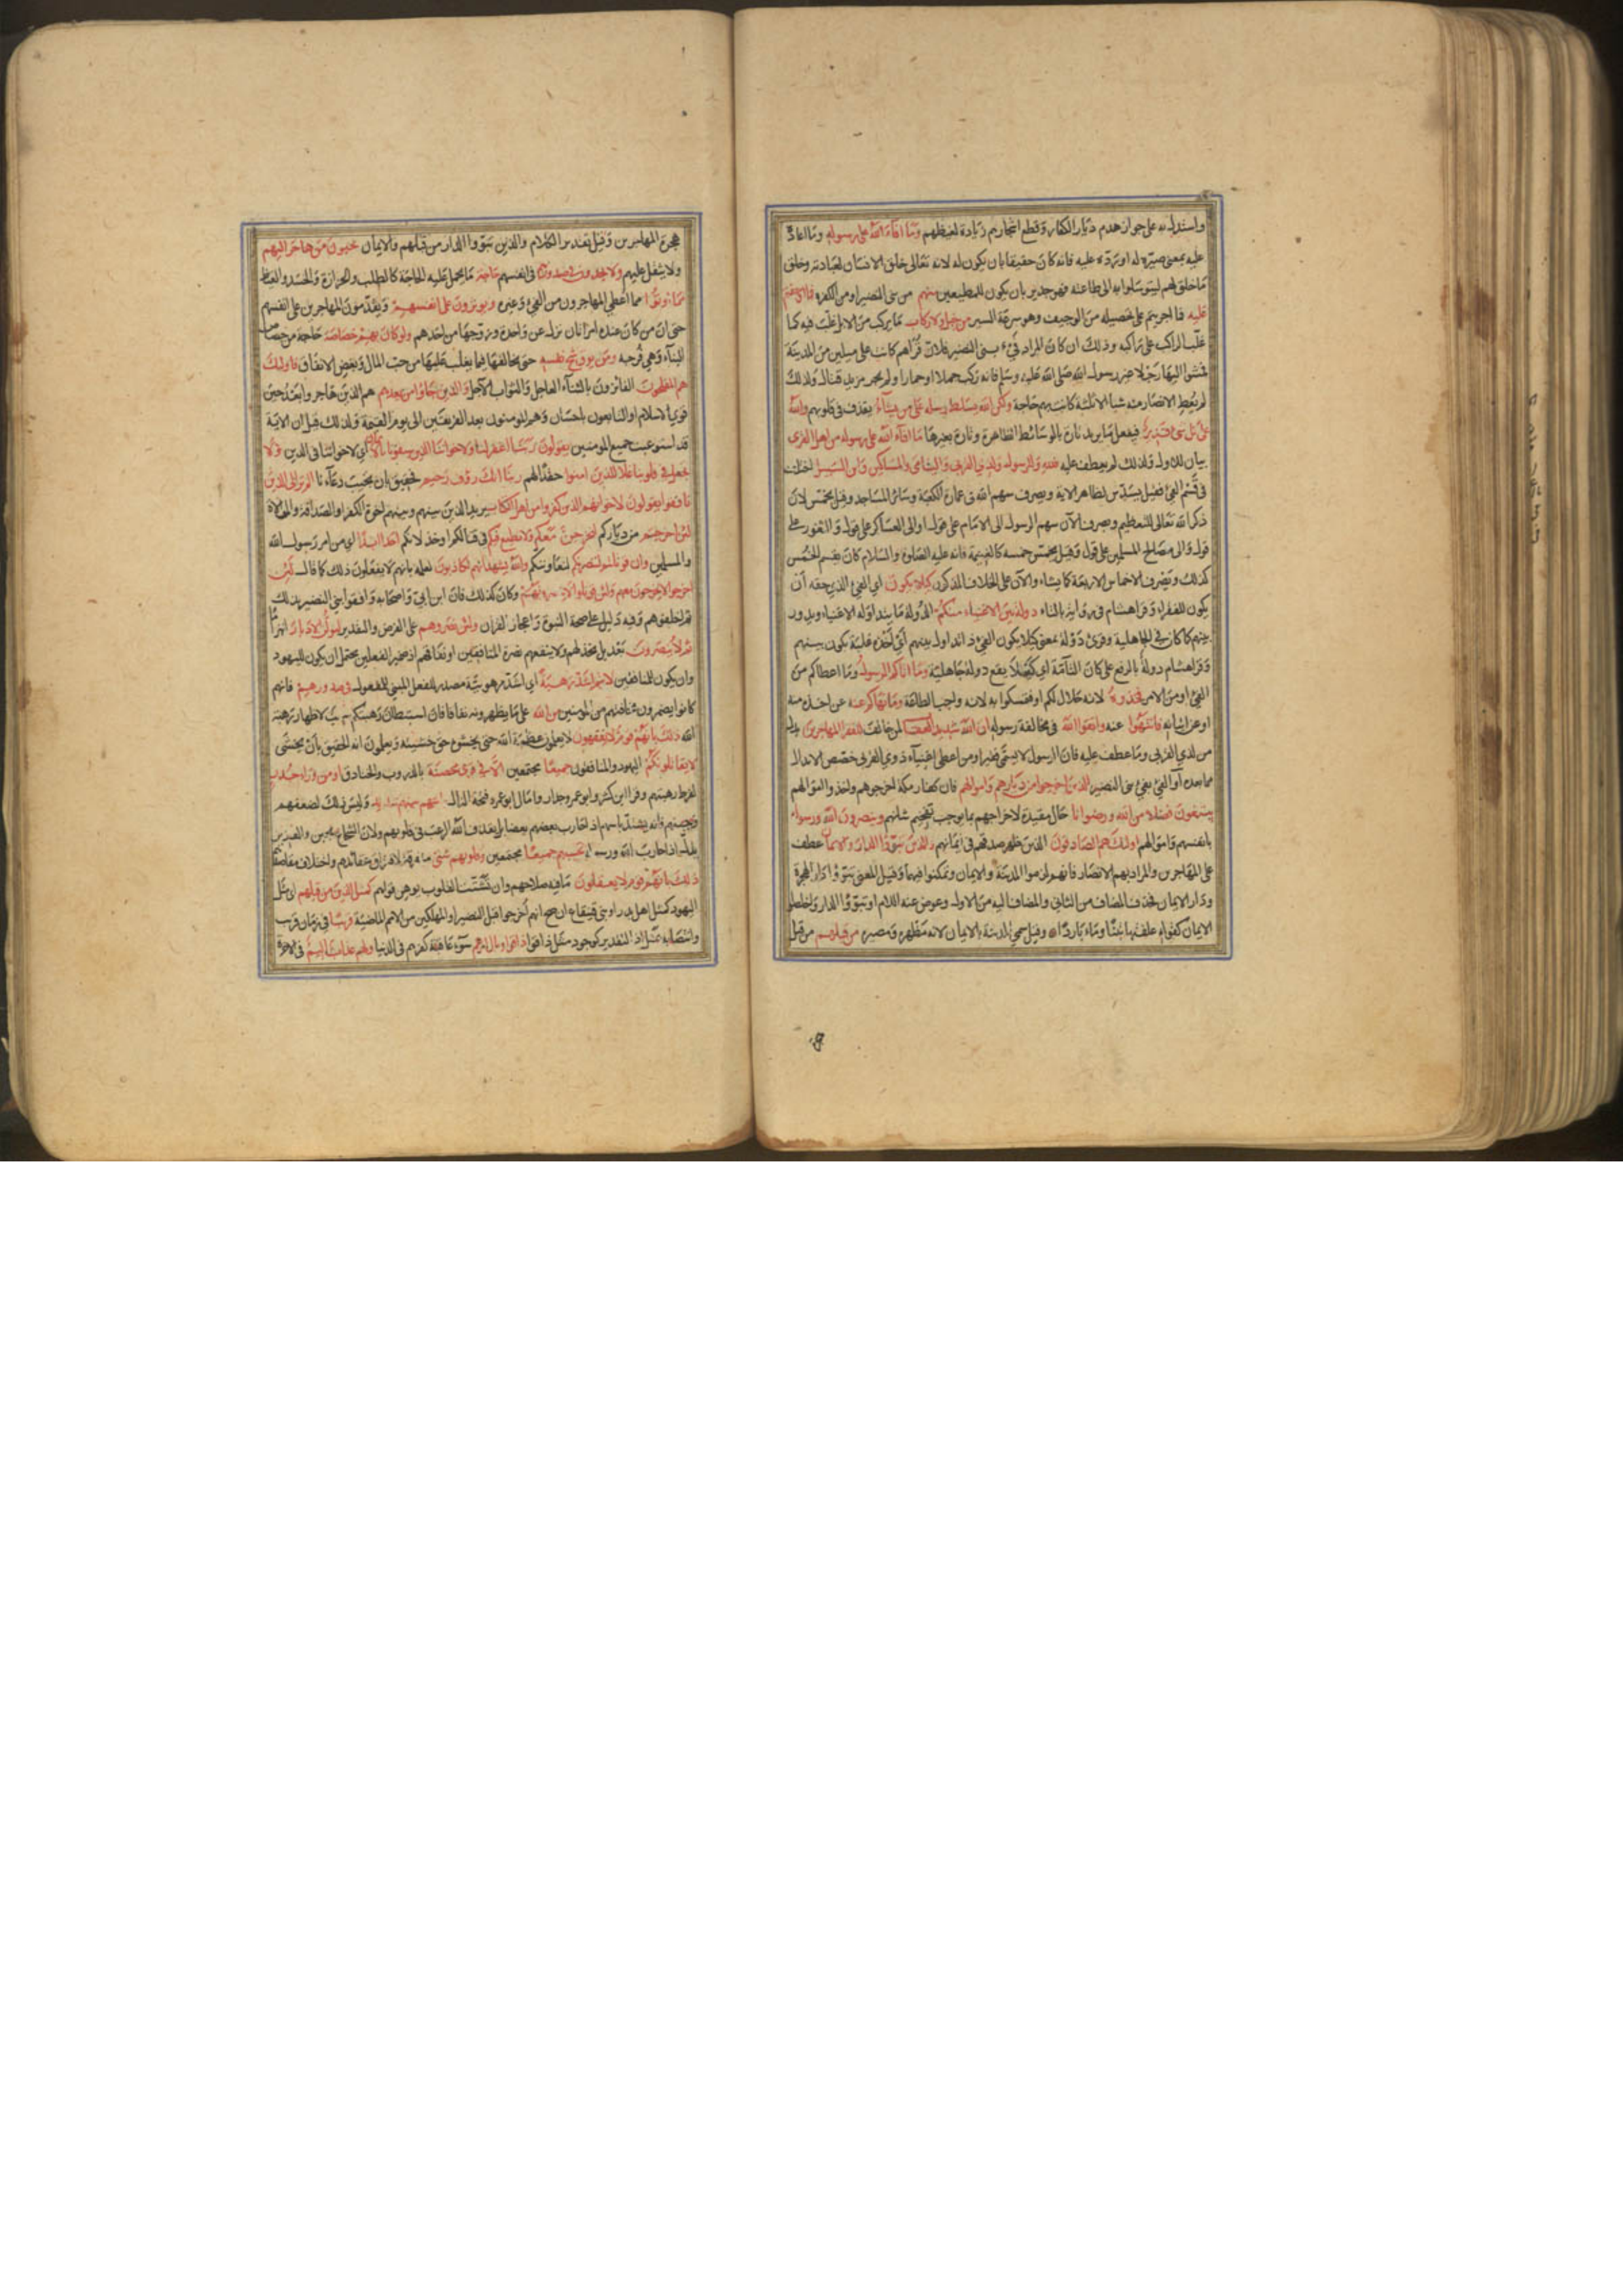 واستدل به على جواز هدم ديار الكفار وقطع اشجارهم زيادة لغيظهم وما افاء الله على رسوله وما اعاده
عليه بمعنى صيره له او رده عليه فانه كان حقيقا بان يكون له لانه تعالى خلق الانسان لعبادته وخلق
ما خلق لهم ليتوسلوا به الى طاعته فهو جدير بان يكون للمطيعين منهم من بنى النضير او من الكفرة فما اوجفتم
عليه فما اجريتم على تحصيله من الوجيف وهو سرعة السير من خيل ولا ركاب ما يركب من الابل غلب فيه كما
غلب الراكب على راكبه وذلك ان كان المراد فيء بنى النضير فلان قراهم كانت على ميلين من المدينة
فمشوا اليها رجالا غير رسول الله صلى الله عليه وسلم فانه ركب جملا او حمارا ولم يجر مزيد قتال ولذلك
لم يعط الانصار منه شيا الا ثلثة كانت بهم حاجة ولكن الله يسلط رسله على من يشاء بقذف فى قلوبهم والله
على كل شى قدير فيفعل ما يريد تارة بالوسائط الظاهرة وتارة بغيرها ما افاء الله على رسوله من اهل القرى
بيان للاول ولذلك لم يعطف عليه فلله وللرسول ولذى القربى واليتامى والمساكين وابن السبيل اختلف
فى قسم الفئ فقيل يسدس لظاهر الاية ويصرف سهم الله فى عمارة الكعبة وسائر المساجد وقيل يخمس لان
ذكر الله تعالى للتعظيم ويصرف الآن سهم الرسول الى الامام على قول والى العساكر والثغور على
قول والى مصالح المسلمين على قول وقيل يخمس خمسه كالغنيمة فانه عليه الصلوة والسلام كان يقسم الخمس
كذلك ويصرف الاخماس الاربعة كما يشاء والآن على الخلاف المذكور كيلا يكون اى الفئ الذى حقه ان
يكون للفقراء وقرا هشام فى رواية بالتاء دولة بين الاغنياء منكم الدولة ما يتداوله الاغنياء ويدور
بينهم كما كان فى الجاهلية وقرئ دولة بمعنى كيلا يكون الفئ ذا تداول بينهم او اخذه غلبة تكون بينهم
وقرا هشام دولة بالرفع على كان التامة اى كيلا يقع دولة جاهلية وما اتاكم الرسول وما اعطاكم من
الفئ او من الامر فخذوه لانه حلال لكم او فتمسكوا به لانه واجب الطاعة وما نهاكم عنه عن اخذه منه
او عن اتيانه فانتهوا عنه واتقوا الله فى مخالفة رسوله ان الله شديد العقاب لمن خالف للفقراء المهاجرين بدل
من لذى القربى وما عطف عليه فان الرسول لا يسمى فقيرا ومن اعطى اغنياء ذوى القربى خصص الابدال
بما بعده او الفئ بفئ بنى النضير الذين اخرجوا من ديارهم واموالهم فان كفار مكة اخرجوهم واخذوا اموالهم
يبتغون فضلا من الله ورضوانا حال مقيدة لاخراجهم بما يوجب تفخيم شانهم وينصرون الله ورسوله
بانفسهم واموالهم اولئك هم الصادقون الذين ظهر صدقهم فى ايمانهم والذين تبوؤا الدار والايمان عطف
على المهاجرين والمراد بهم الانصار فانهم لزموا المدينة والايمان وتمكنوا فيهما وقيل المعنى تبوؤا دار الهجرة
ودار الايمان فحذف المضاف من الثانى والمضاف اليه من الاول وعوض عنه اللام او تبوؤا الدار واخلصوا
الايمان كقوله علفتها تبنا وماء باردا وقيل سمى المدينة بالايمان لانه مظهره ومصيره من قبلهم من قبل
هجرة المهاجرين وقيل تقدير الكلام والذين تبوؤا الدار من قبلهم والايمان يحبون من هاجر اليهم
ولا يثقل عليهم ولا يجدون فى صدورهم فى انفسهم حاجة ما يحمل عليه الحاجة كالطلب والحزازة والحسد والغيظ
مما اوتوا مما اعطى المهاجرون من الفئ وغيره ويوثرون على انفسهم ويقدمون المهاجرين على انفسهم
حتى ان من كان عنده امراتان نزل عن واحدة وزوجها من احدهم ولو كان بهم خصاصة حاجة من خصاص
البناء وهى فرجه ومن يوق شح نفسه حتى يخالفها فيما يغلب عليها من حب المال وبغض الانفاق فاولئك
هم المفلحون الفائزون بالثناء العاجل والثواب الآجل والذين جاؤا من بعدهم هم الذين هاجروا بعد حين
قوى الاسلام او التابعون باحسان وهم المومنون بعد الفريقين الى يوم القيمة ولذلك قيل ان الاية
قد استوعبت جميع المومنين يقولون ربنا اغفر لنا ولاخواننا الذين سبقونا بالايمان اى لاخواننا فى الدين ولا
تجعل فى قلوبنا غلا للذين امنوا حقدا لهم ربنا انك رؤف رحيم فحقيق بان تجيب دعاءنا الم تر الى الذين
نافقوا يقولون لاخوانهم الذين كفروا من اهل الكتاب يريد الذين بينهم وبينهم اخوة الكفر او الصداقة والموالاة
لئن اخرجتم من دياركم لنخرجن معكم ولا نطيع فيكم فى قتالكم او خذلانكم احدا ابدا اى من امر رسول الله
والمسلمين وان قوتلتم لننصرنكم لنعاوننكم والله يشهد انهم لكاذبون لعلمه بانهم لا يفعلون ذلك كما قال لئن
اخرجوا لا يخرجون معهم ولئن قوتلوا لا ينصرونهم وكان كذلك فان ابن ابى واصحابه وافقوا بنى النضير بذلك
ثم اخلفوهم وفيه دليل على صحة النبوة واعجاز القران ولئن نصروهم على الفرض والتقدير ليولن الادبار انهزاما
ثم لا ينصرون بعد بل يخذلهم ولا ينفعهم نصرة المنافقين او نفاقهم اذ ضمير الفعلين يحتمل ان يكون لليهود
وان يكون للمنافقين لانتم اشد رهبة اى اشد مرهوبية مصدر للفعل المبنى للمفعول فى صدورهم فانهم
كانوا يضمرون مخافتهم من المومنين من الله على ما يظهرونه نفاقا فان استبطان رهبتكم سبب لاظهار رهبة
الله ذلك بانهم قوم لا يفقهون لا يعلمون عظمة الله حتى يخشوه حق خشيته ويعلمون انه الحقيق بان يخشى
لا يقاتلونكم اليهود والمنافقون جميعا مجتمعين الا فى قرى محصنة بالدروب والخنادق او من وراء جدر
لفرط رهبتهم وقرا ابن كثير وابو عمرو جدار وامال ابو عمرو فتحة الدال باسهم بينهم شديد وليس ذلك لضعفهم
وجبنهم فانه يشتد باسهم اذا حارب بعضهم بعضا بل لقذف الله الرعب فى قلوبهم ولان الشجاع يجبن والعزيز
يذل اذا حارب الله ورسوله تحسبهم جميعا مجتمعين وقلوبهم شتى متفرقة لافتراق عقائدهم واختلاف مقاصدهم
ذلك بانهم قوم لا يعقلون ما فيه صلاحهم وان تشتت القلوب يوهن قواهم كمثل الذين من قبلهم اى مثل
اليهود كمثل اهل بدر او بنى قينقاع ان صح انهم اخرجوا قبل النضير او المهلكين من الامم الماضية قريبا فى زمان قريب
وانتصابه بمثل اذ التقدير كوجود مثل ذاقوا وبال امرهم سوء عاقبة كفرهم فى الدنيا ولهم عذاب اليم فى الاخرة